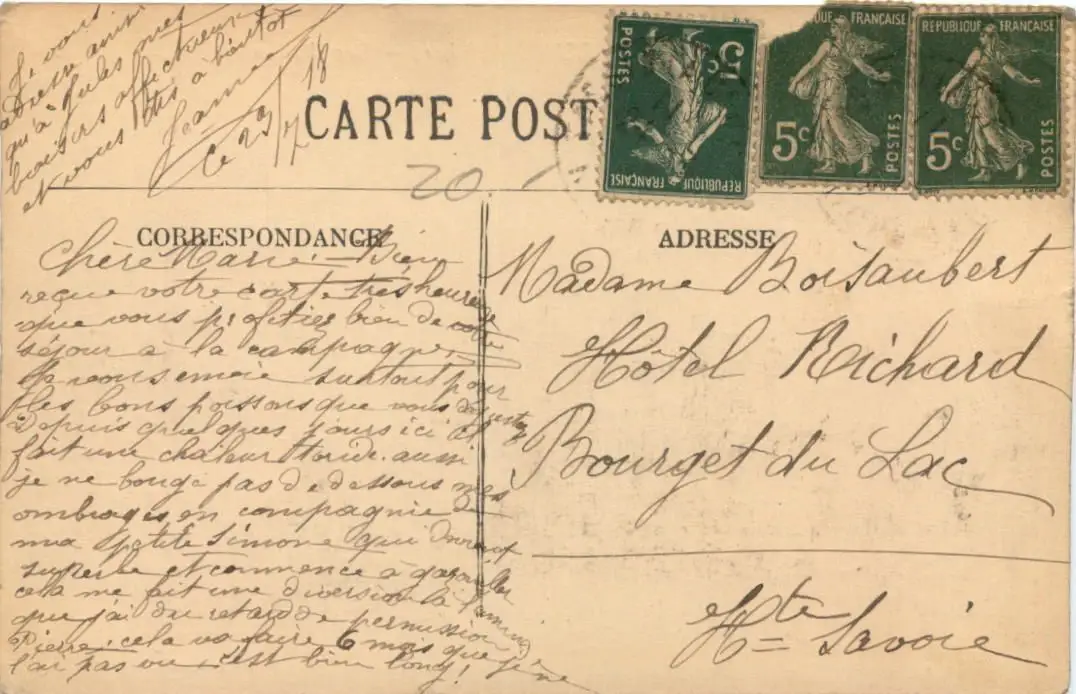 CARTE POST
20
POSTES
5c
RÉPUBLIQUE FRANÇAISE
QUE FRANÇAISE
5c
POSTES
REPUBLIQUE FRANÇAISE
5c
POSTES
CORRESPONDANCE
Chère Marie. Bien
reçue votre carte très heureuse
que vous profitiez bien de votre
séjour à la campagne,
surtout pour
les bons poissons que vous dégustez
Depuis quelques jours ici il
fait une chaleur torride. aussi
je ne bouge pas de dessous mes
ombrages, en compagnie de
ma petite Simone qui devient
superbe et commence à gazouiller
cela me fait une diversion à
que j'ai du retard de permission
Pierre, cela va faire 6 mois que je ne
l'ai pas vu, c'est bien long!
Je vous
adresse ainsi
qu'à Jules mes
baisers affectueux
et vous dis à bientôt
Jeanne
Ce 29/7 18
ADRESSE
Madame Boisaubert
Hôtel Richard
Bourget du Lac
Hte Savoie